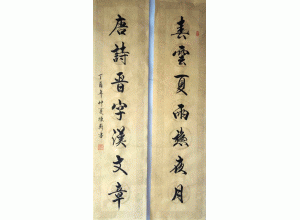 春雲夏雨秋夜月
唐詩晉字漢文章
丁酉年仲夏